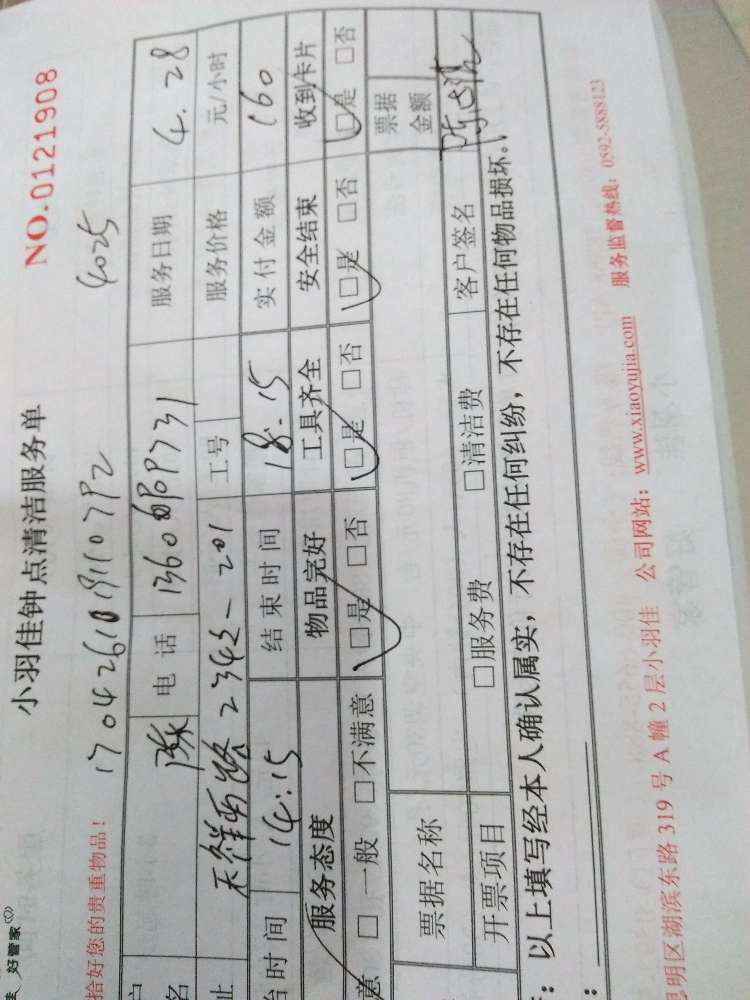 好管家
小羽佳钟点清洁服务单
NO.0121908
拾好您的贵重物品！
4025
陈 电话 服务日期 4.28
工号 服务价格 元/小时
台时间 14:15 结束时间 18:15 实付金额 160
服务态度 物品完好 工具齐全 安全结束 收到卡片
意 □一般 □不满意 □是 □否 □是 □否 □是 □否 □是 □否
票据名称 票据金额
开票项目 □服务费 □清洁费 客户签名
：以上填写经本人确认属实，不存在任何纠纷，不存在任何物品损坏。
明区湖滨东路 319 号 A 幢 2 层小羽佳 公司网站：www.xiaoyujia.com 服务监督热线：0592-5888123